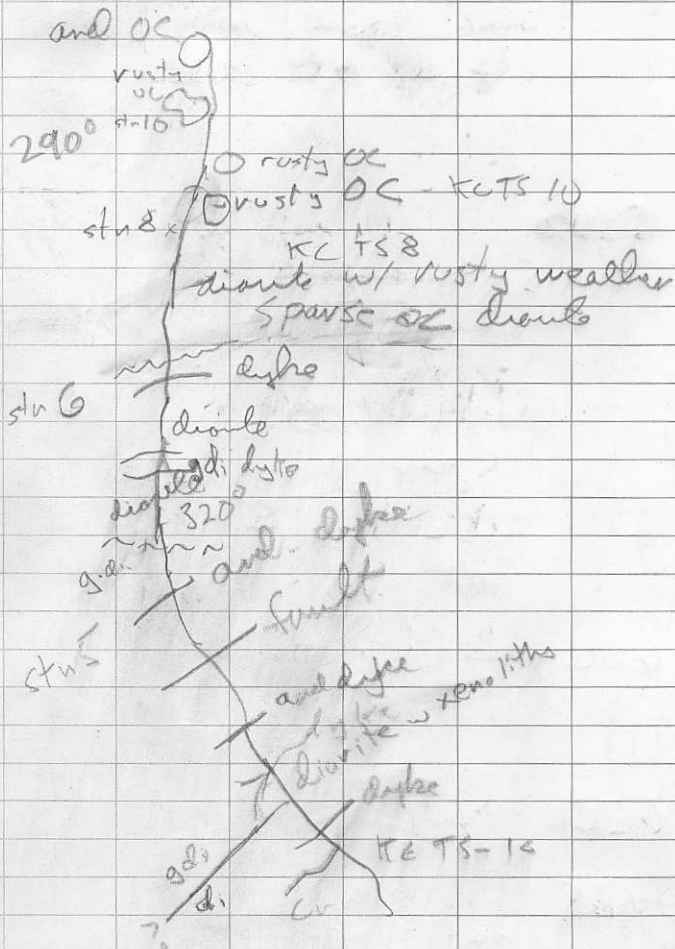 and OC
rusty
OC
stn 10
290°
rusty OC
rusty OC - KCTS 10
stn 8 x
KC TS 8
diorite w/ rusty weather
sparse OC diorite
dyke
stn 6
diorite
gdi dyke
diorite
320°
and. dyke
g.di.
fault
stn 5
and dyke
dyke
diorite w xenoliths
dyke
gdi
di
?